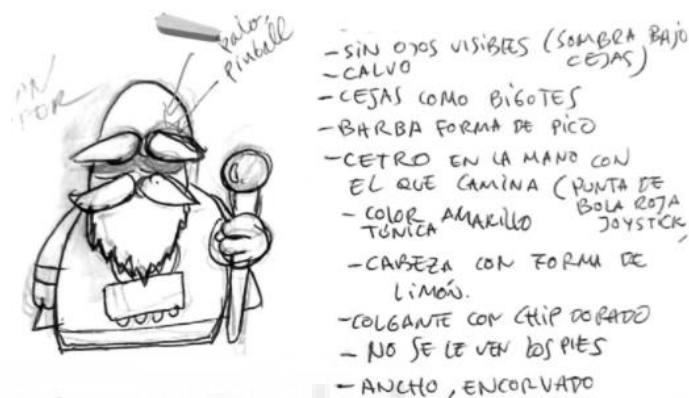 palo,
pinball
- SIN OJOS VISIBLES (SOMBRA BAJO
CEJAS)
- CALVO
- CEJAS COMO BIGOTES
- BARBA FORMA DE PICO
- CETRO EN LA MANO CON
EL QUE CAMINA (PUNTA DE
BOLA ROJA
JOYSTICK,
- COLOR AMARILLO
TÚNICA
- CABEZA CON FORMA DE
LIMÓN.
- COLGANTE CON CHIP DORADO
- NO SE LE VEN LOS PIES
- ANCHO, ENCORVADO